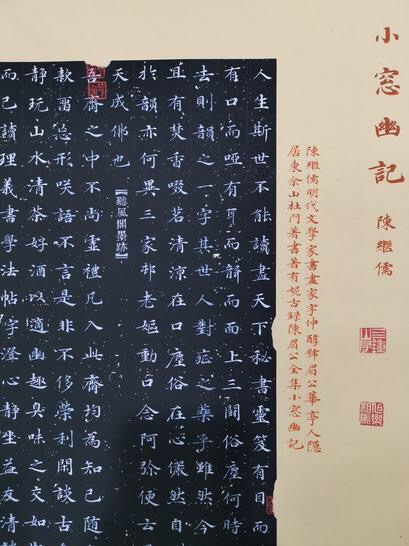 小窓幽記
陳繼儒
陳繼儒明代文學家書畫家字仲醇號眉公華亭人隱
居東佘山杜門著書著有妮古錄陳眉公全集小窓幽記
人生斯世不能讀盡天下秘書靈笈有目而
有口而啞有耳而聾而面上三閗俗塵何時
去則韻之一字其世人對症之藥乎雖然今
且有焚香啜茗清涼在口塵俗在心儼然自
於韻亦何異三家邨老嫗動口念阿弥便云
天成佛也
【聽風閣墨跡】
吾齋之中不尚虛禮凡入此齋均為知己隨
款留忘形咲語不言是非不侈榮利閑談古
靜玩山水清茶好酒以適幽趣臭味之交如
而已讀理義書學法帖字澄心靜坐益友清